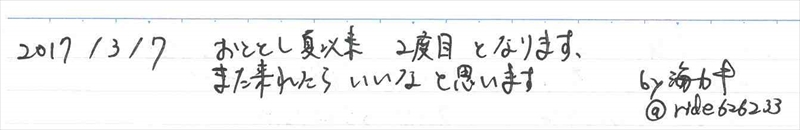 2017/3/7 おととし夏以来 2度目 となります、
また来れたら いいな と思います
by
@ride626233